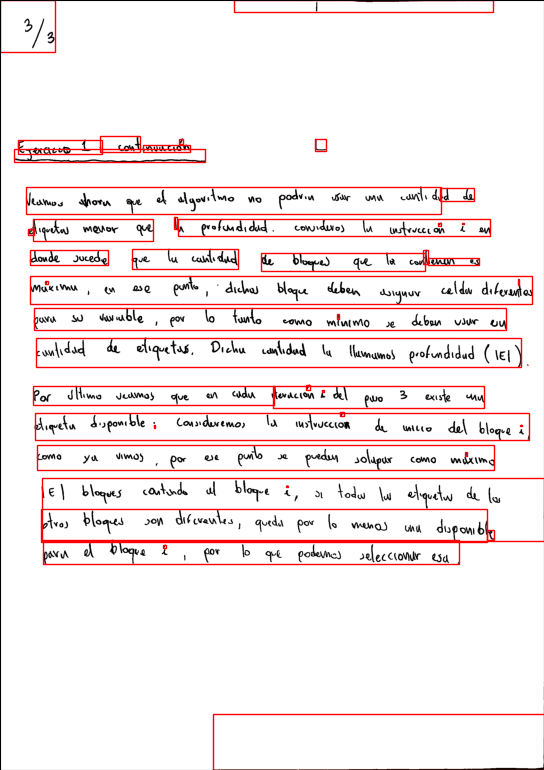 3/3
Ejercicio 1 continuación
Veamos ahora que el algoritmo no podría usar una cantidad de
etiquetas menor que la profundidad. consideros la instrucción i en
donde sucede que la cantidad de bloques que la contienen es
máxima, en ese punto, dichos bloque deben asignar celdas diferentes
para su variable, por lo tanto como mínimo se deben usar en
cantidad de etiquetas. Dicha cantidad la llamamos profundidad (|E|).
Por último veamos que en cada iteración i del paso 3 existe una
etiqueta disponible; Consideremos la instrucción de inicio del bloque i,
como ya vimos, por ese punto se pueden solapar como máximo
|E| bloques contando al bloque i, si todas las etiquetas de los
otros bloques son diferentes, queda por lo menos una disponible
para el bloque i, por lo que podemos seleccionar esa.